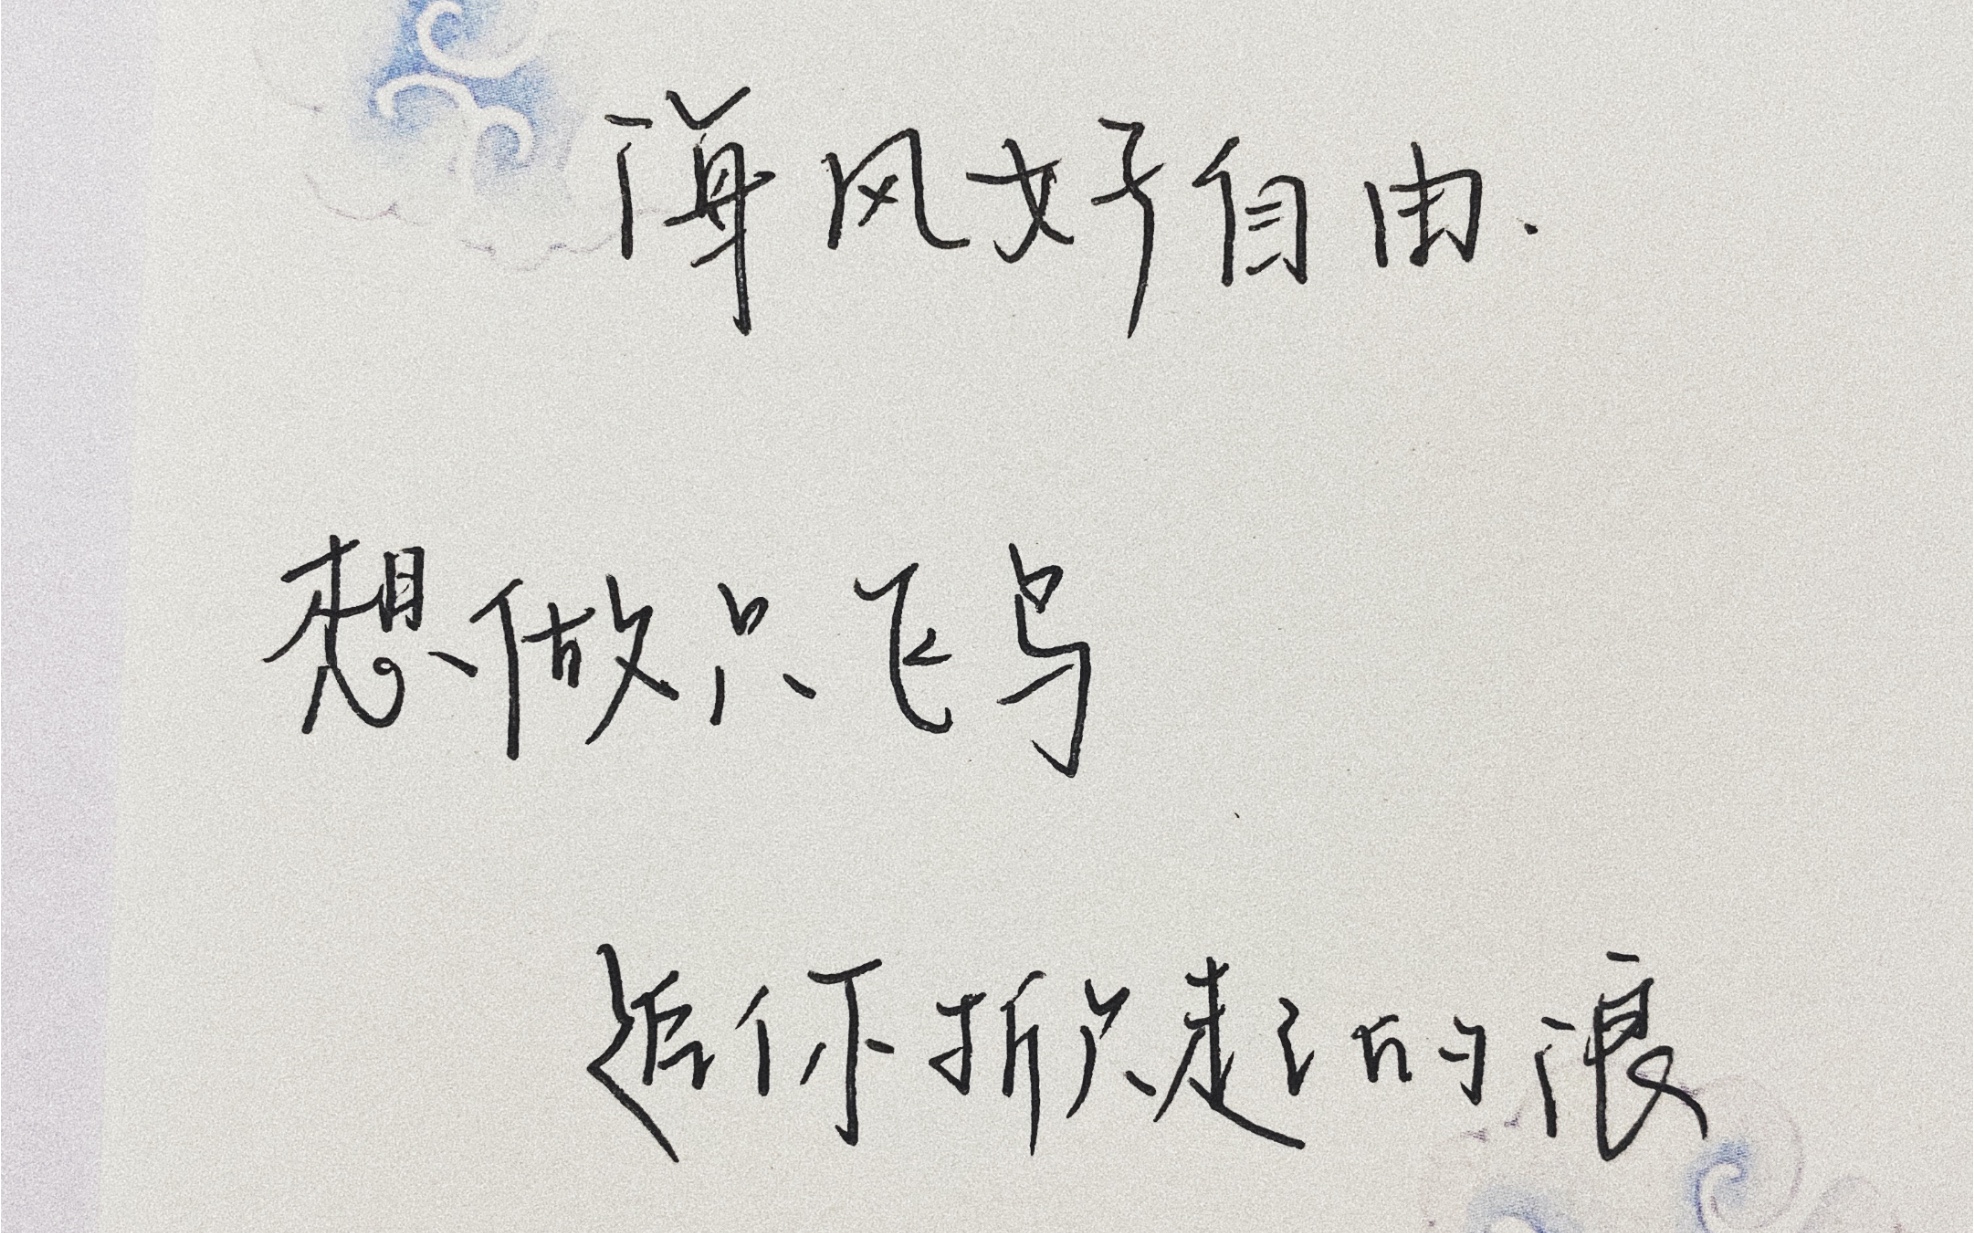 海风好自由.
想做只飞鸟
追你掀起的浪